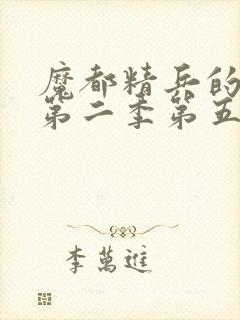 魔都精兵的
第二季第五
李萬進